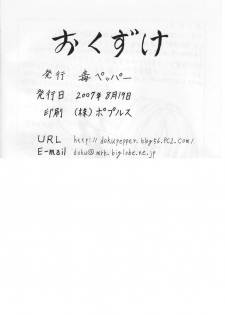 おくずけ
発行 毒ペッパー
発行日 2007年8月19日
印刷 (株)ポプルス
URL http://dokupepper.blog56.FC2.com/
E-mail doku@mrh.biglobe.ne.jp